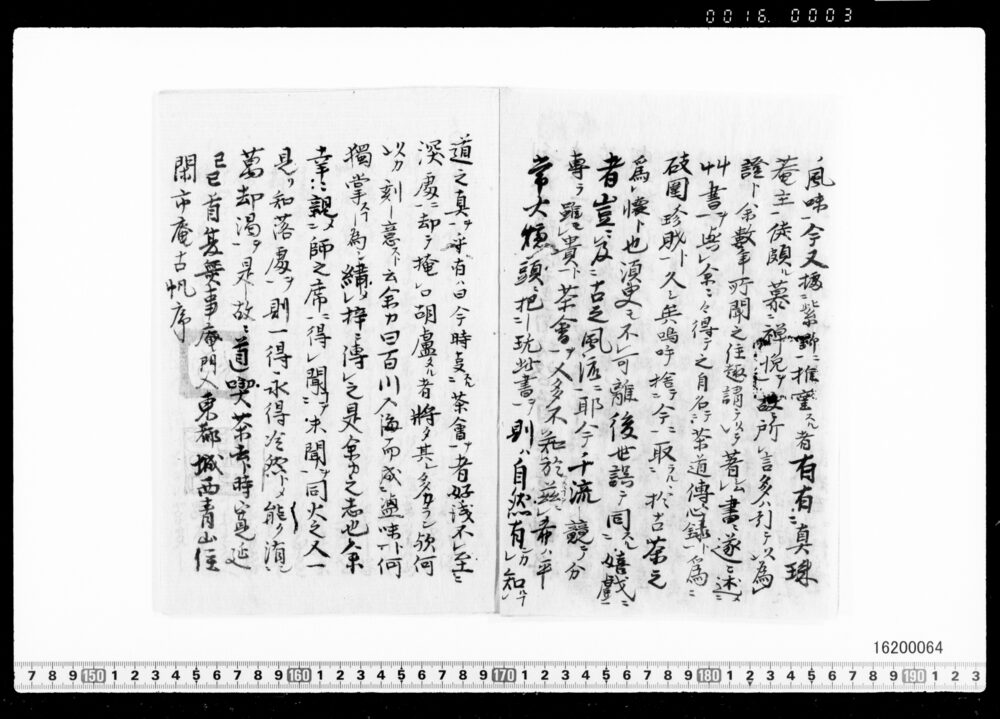 0016.0003
風味一今又據紫野ニ推窒スル者有有ニ真珠
菴主一徒頗ル慕ニ禅悦ヲ故所レ言多ハ引テ以為
證ト余數年所聞之住趣謂テ著レ書ニ遂ニ述
艸書ヲ与レ余ニ々得テ之自名テ茶道傳心録ト為ニ
珍賊ト久シ矣嗚呼捨テ今ニ取ラハ於古茶之
為レ懐ト也須史モ不レ可離後世誤テ同ニ嬉戯ニ
者豈ニ及ニ古之風流ニ耶今千流競テ分
専ラ雖ニ貴ト茶會ヲ人多不知於茲レ希ハ平
常大頭ニ把ニ玩此書ヲ則ハ自然有レ知
道之真ヲ乎有ハ曰今時茶會ヲ者好浅不レ至ニ
深處ニ却テ掩レ口胡盧スル者将タ其レ多カラン欤何
以カ刻レ意スト云余カ曰百川入海而成ニ鹽味一何
獨掌スル為ン繍レ梓ニ傳レ之是余カ之志也余
幸ニ親ク師之席ニ得レ聞ヲ未聞ヲ同火之人一
見ノ知落處ヲ則一得永得冷然トメ能ク消
却渇ヲ是故ニ道喫茶去ト時寛延
己巳首夏無事庵門人東都城西青山住
閑市庵古帆序
16200064
7 8 9 150 1 2 3 4 5 6 7 8 9 160 1 2 3 4 5 6 7 8 9 170 1 2 3 4 5 6 7 8 9 180 1 2 3 4 5 6 7 8 9 190 1 2 3